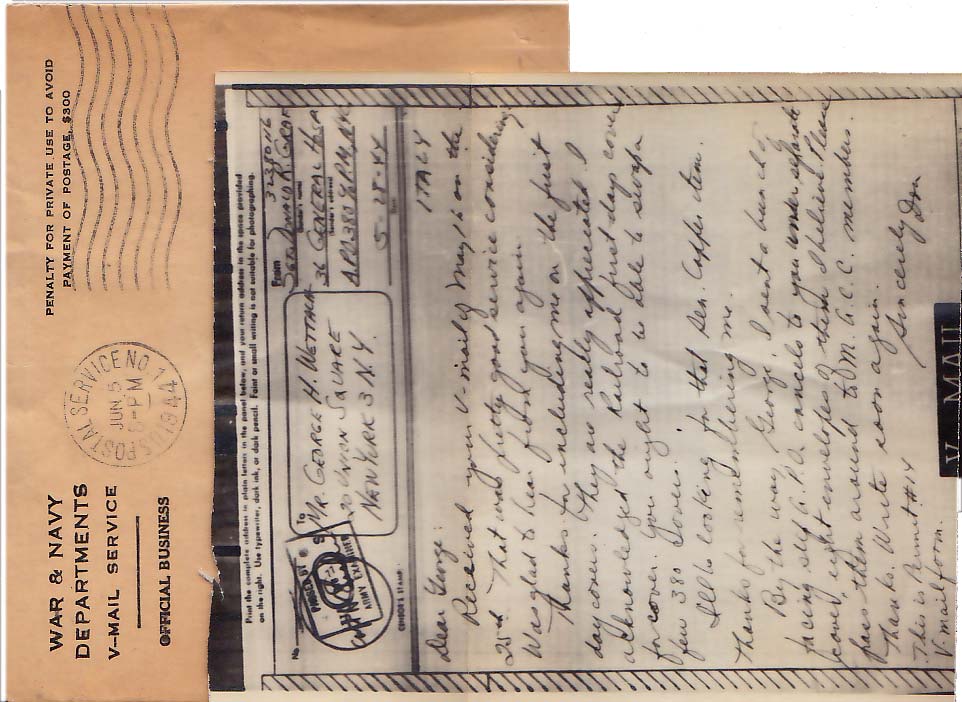 WAR & NAVY
DEPARTMENTS
V-MAIL SERVICE
OFFICIAL BUSINESS
U.S. POSTAL SERVICE NO. 14
JUN 5
8-PM
1944
PENALTY FOR PRIVATE USE TO AVOID
PAYMENT OF POSTAGE, $300
Print the complete address in plain letters in the panel below, and your return address in the space provided
on the right. Use typewriter, dark ink, or dark pencil. Faint or small writing is not suitable for photographing.
No.
PASSED BY
ARMY EXAMINER
CENSOR'S STAMP
To
MR. GEORGE H. WETTACH
20 UNION SQUARE
NEW YORK 3 N.Y.
From
DONALD R.
Sender's name
36 GENERAL HOSP
Sender's address
APO 380 % P.M. N.Y.
5-28-44
Date
ITALY
Dear George:
Received your V-mail of May 16 on the
25th. That was pretty good service considering
Was glad to hear from you again.
Thanks for including me on the first
day covers. They are really appreciated. I
acknowledged the Railroad first days cover
for cover. You ought to be able to swap a
few 380 covers.
I'll be looking for that Sen. Capper item.
Thanks for remembering me.
By the way, George, I sent a bunch of
facing slip A.P.O. cancels to you under separate
cover, eight envelopes of them I believe. Please
pass them around to M.C.C. members.
Thanks. Write soon again.
Sincerely Don
This is Permit #14
V mail form.
V-MAIL